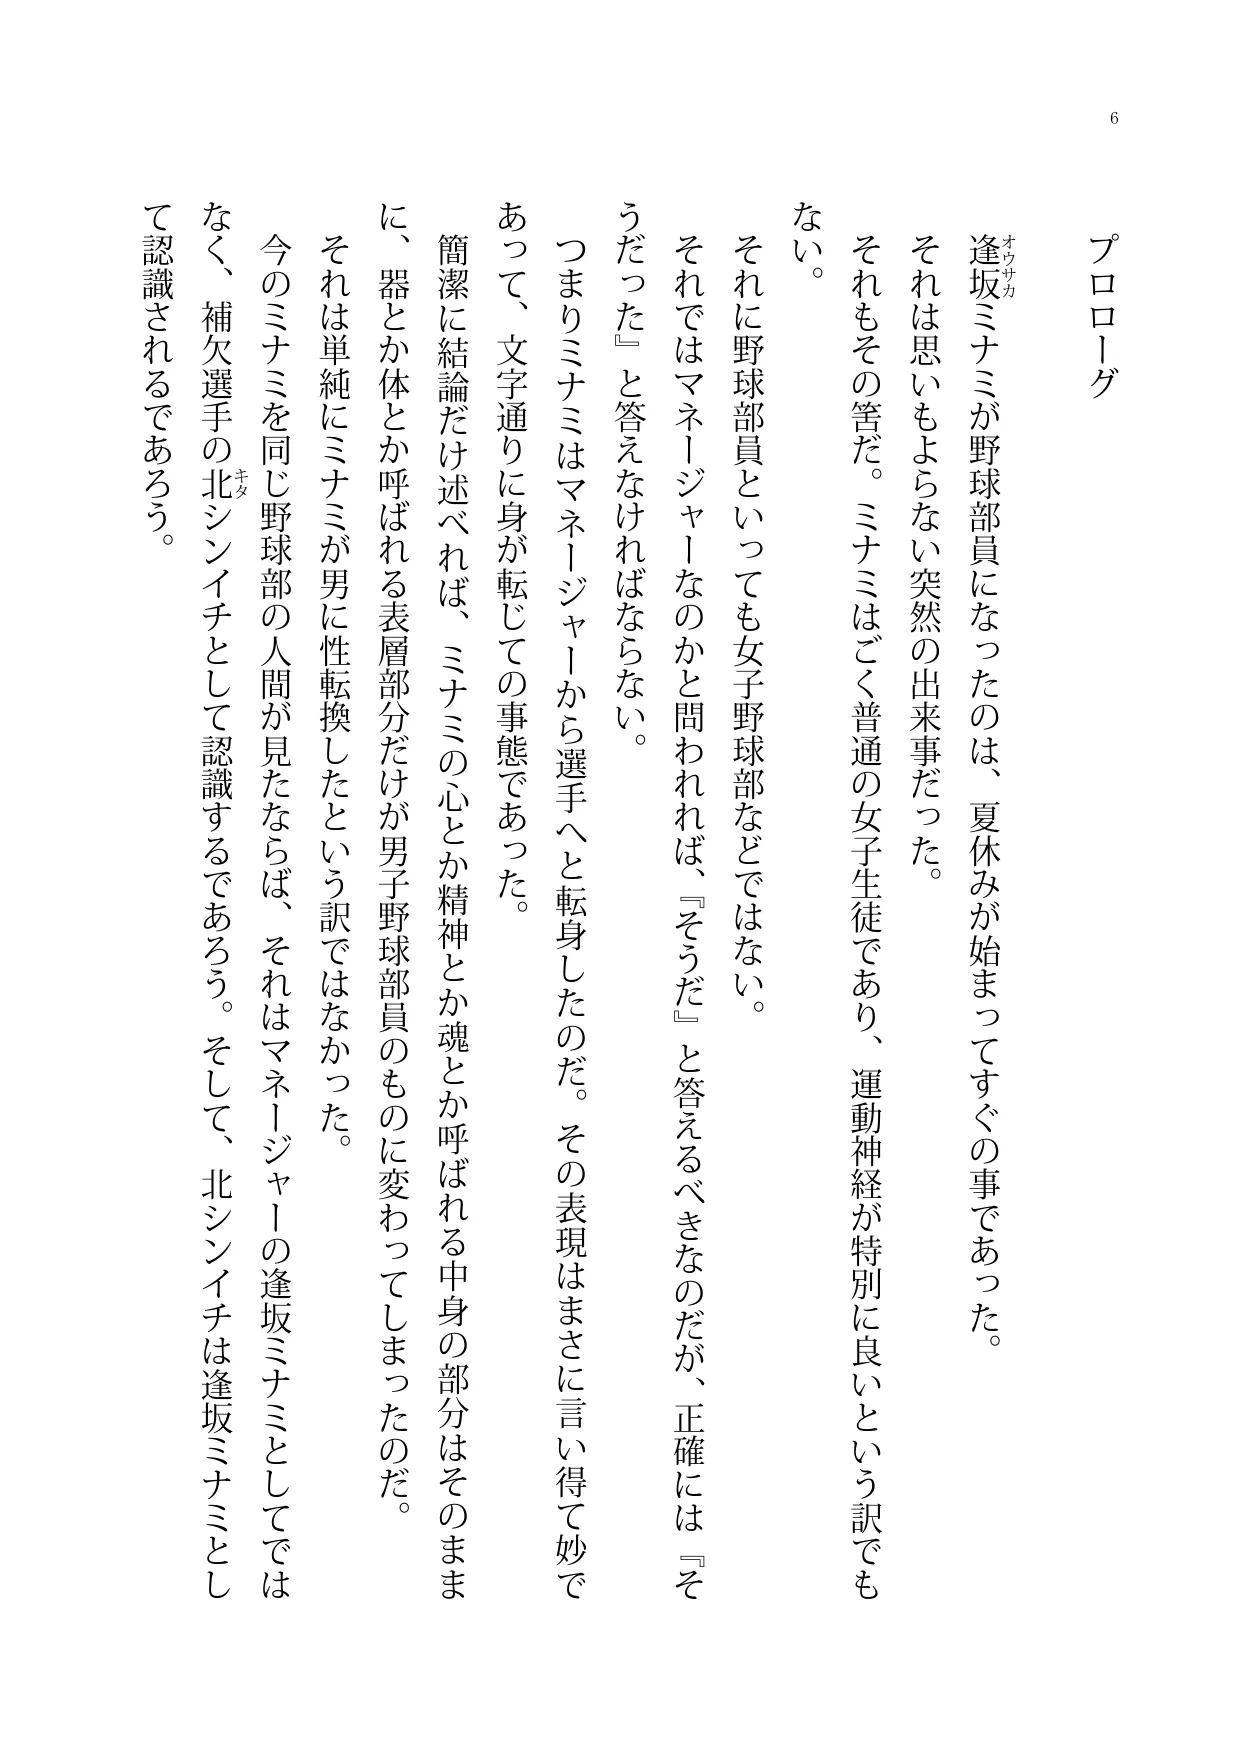 6
プロローグ
逢坂ミナミが野球部員になったのは、夏休みが始まってすぐの事であった。
オウサカ
それは思いもよらない突然の出来事だった。
それもその筈だ。ミナミはごく普通の女子生徒であり、運動神経が特別に良いという訳でも
ない。
それに野球部員といっても女子野球部などではない。
それではマネージャーなのかと問われれば、『そうだ』と答えるべきなのだが、正確には『そ
うだった』と答えなければならない。
つまりミナミはマネージャーから選手へと転身したのだ。その表現はまさに言い得て妙で
あって、文字通りに身が転じての事態であった。
簡潔に結論だけ述べれば、ミナミの心とか精神とか魂とか呼ばれる中身の部分はそのまま
に、器とか体とか呼ばれる表層部分だけが男子野球部員のものに変わってしまったのだ。
それは単純にミナミが男に性転換したという訳ではなかった。
今のミナミを同じ野球部の人間が見たならば、それはマネージャーの逢坂ミナミとしてでは
なく、補欠選手の北シンイチとして認識するであろう。そして、北シンイチは逢坂ミナミとし
キタ
て認識されるであろう。